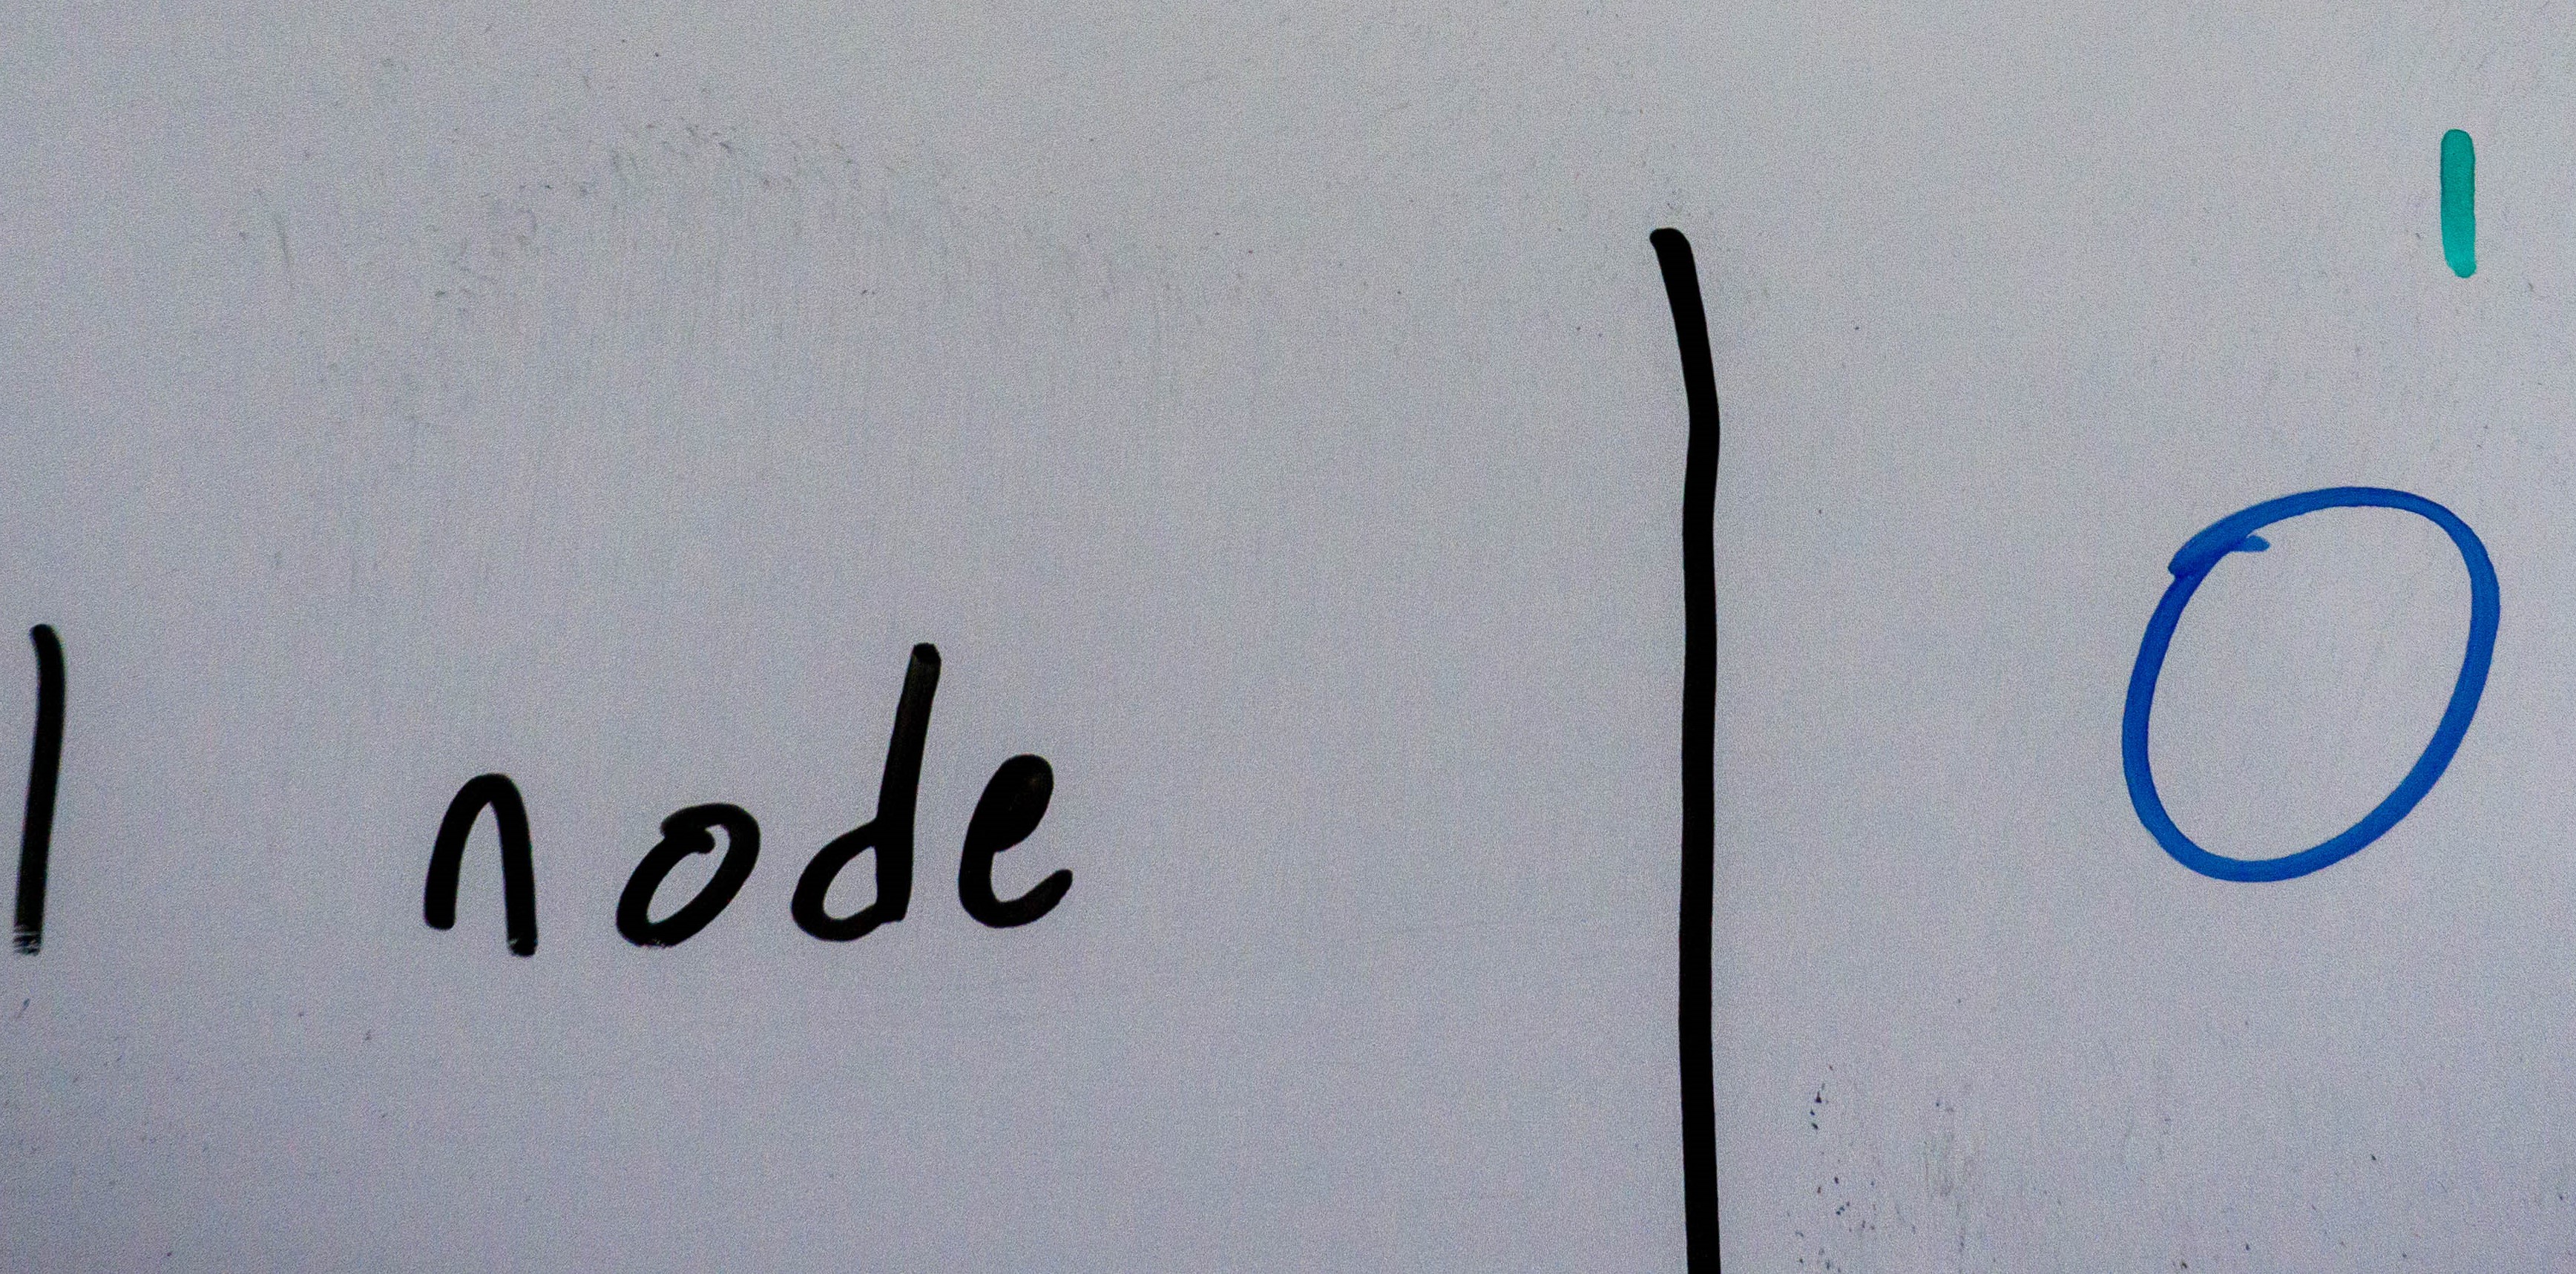 1 node